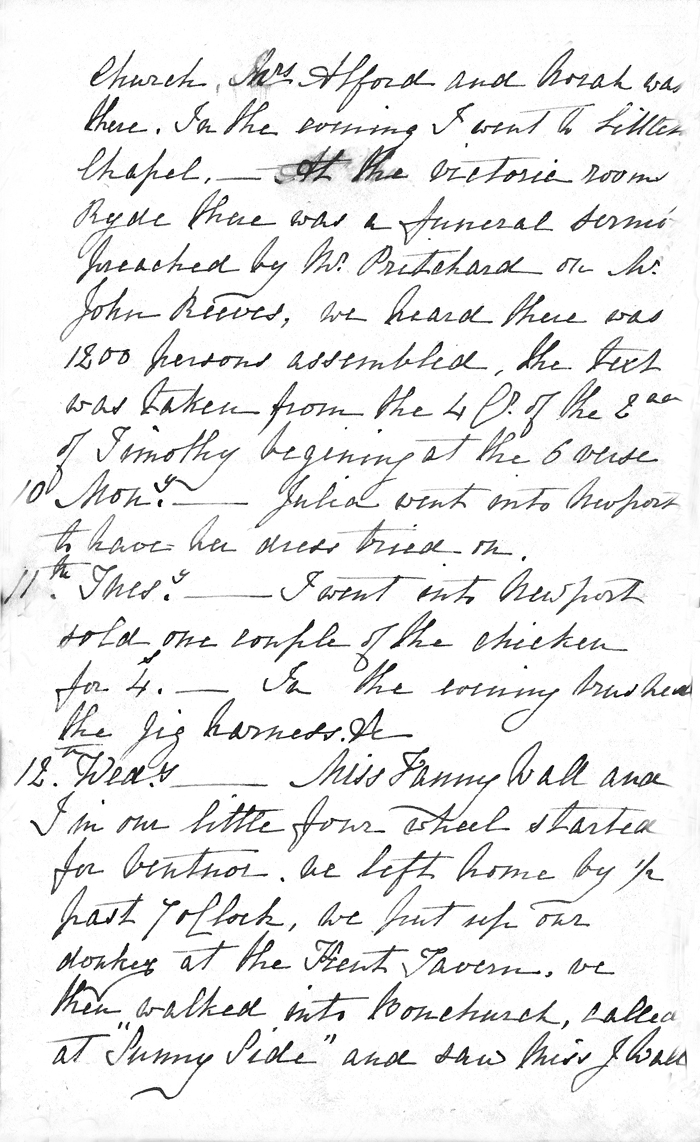 Church. Mrs Alford and Norah was
there. In the evening I went to Littlen
Chapel. — At the victoria room
Ryde there was a funeral sermo
preached by Mr. Pritchard on Mr.
John Reeves, we heard there was
1200 persons assembled, the text
was taken from the 4 Cp. of the 2nd
of Timothy begining at the 6 verse
10 Mony. — Julia went into Newport
to have her dress tried on.
11th. Tuesy. — I went into Newport
sold one couple of the chicken
for 4s. — In the evening brushed
the Jig harness. &c
12th. Weds. — Miss Fanny Wall and
I in our little four wheel started
for Ventnor. we left home by 1/2
past 7 oClock, we put up our
donkey at the Tavern. we
then walked into Bonchurch, called
at "Sunny Side" and saw Miss J Wall